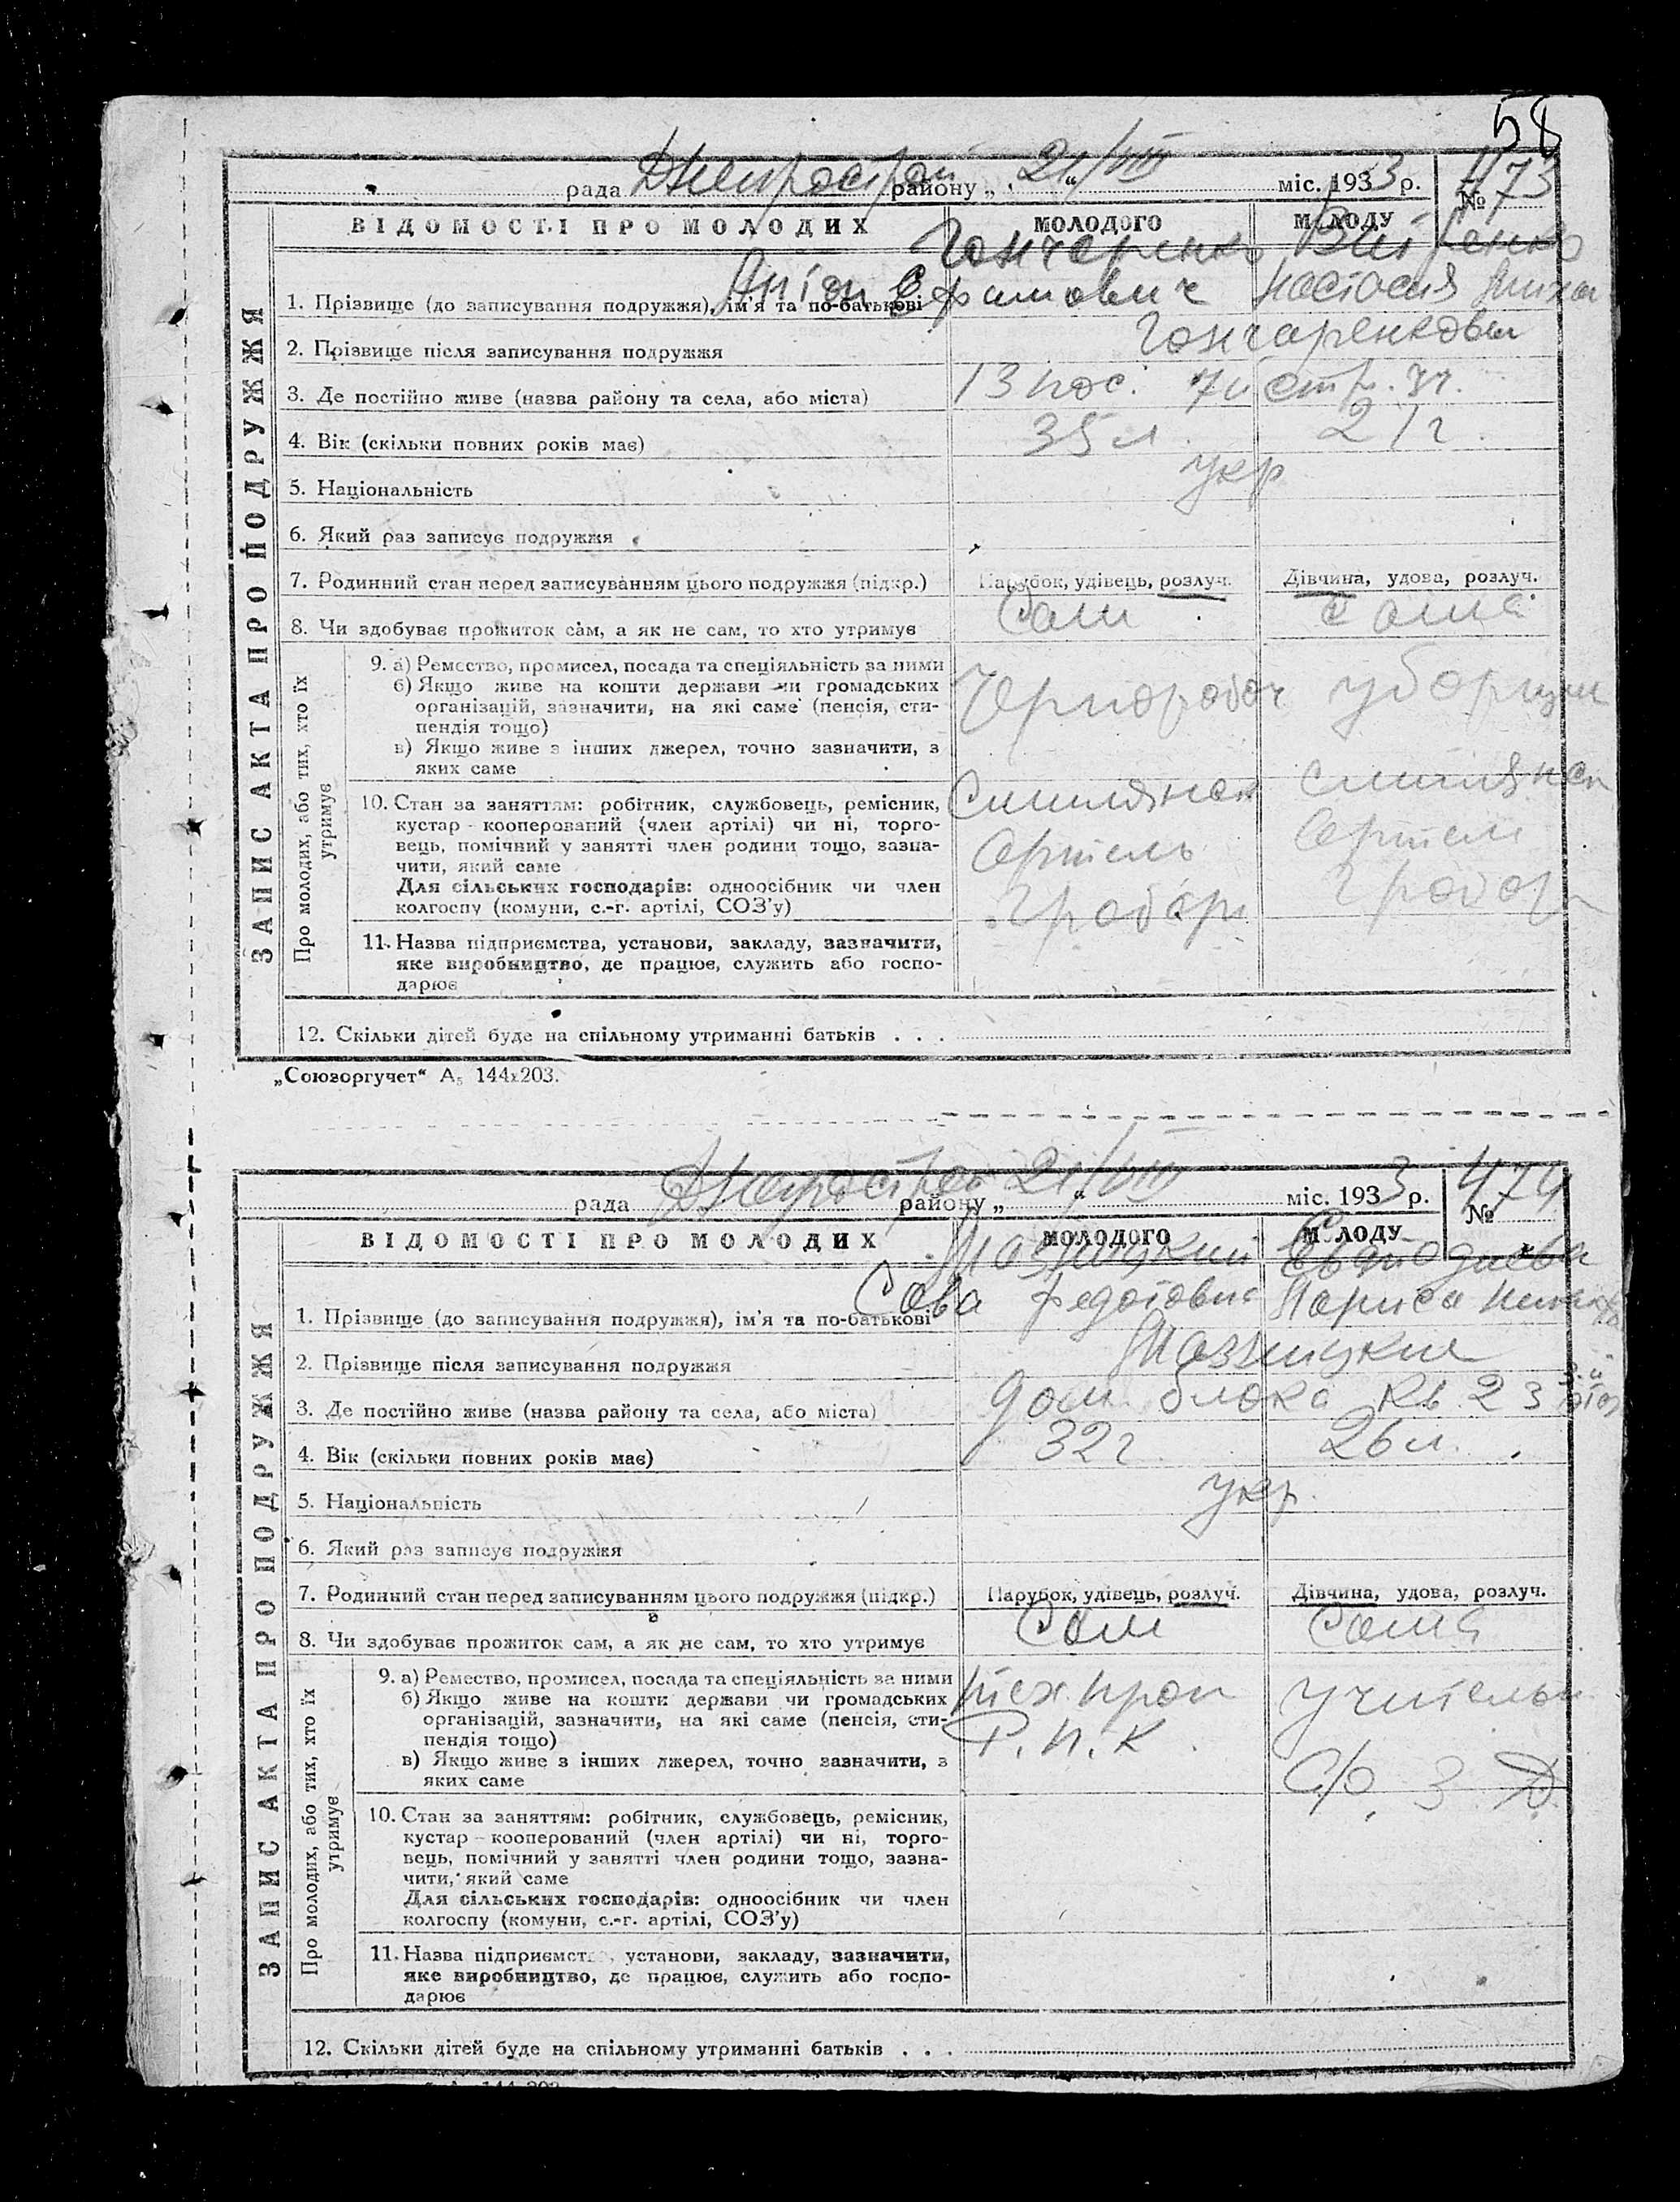 58
рада Днепрострой району „ 21/VIII “ міс. 1933 р. № 473
ВІДОМОСТІ ПРО МОЛОДИХ МОЛОДОГО МОЛОДУ
Гончаренко
1. Прізвище (до записування подружжя), ім'я та по-батькові Антон Настасия
2. Прізвище після записування подружжя Гончаренковы
3. Де постійно живе (назва району та села, або міста) 13 пос.
4. Вік (скільки повних років має) 35 л. 21 г.
5. Національність укр
6. Який раз записує подружжя
7. Родинний стан перед записуванням цього подружжя (підкр.) Парубок, удівець, розлуч. Дівчина, удова, розлуч.
8. Чи здобуває прожиток сам, а як не сам, то хто утримує Сам сама
ЗАПИС АКТА ПРО ПОДРУЖЖЯ
Про молодих, або тих, хто їх утримує
9. а) Ремество, промисел, посада та спеціяльність за ними
б) Якщо живе на кошти держави чи громадських
організацій, зазначити, на які саме (пенсія, сти-
пендія тощо)
в) Якщо живе з інших джерел, точно зазначити, з
яких саме
Чернороboч уборщи
10. Стан за заняттям: робітник, службовець, ремісник,
кустар - кооперований (член артілі) чи ні, торго-
вець, помічний у занятті член родини тощо, зазна-
чити, який саме
Для сільських господарів: одноосібник чи член
колгоспу (комуни, с.-г. артілі, СОЗ'у)
Артель Артель
11. Назва підприємства, установи, закладу, зазначити,
яке виробництво, де працює, служить або госпо-
дарює
12. Скільки дітей буде на спільному утриманні батьків . . .
„Союзоргучет“ А₅ 144х203.
рада Днепрострой району „ 21/VIII “ міс. 1933 р. № 474
ВІДОМОСТІ ПРО МОЛОДИХ МОЛОДОГО МОЛОДУ
1. Прізвище (до записування подружжя), ім'я та по-батькові Сава Федотович Лариса
2. Прізвище після записування подружжя
3. Де постійно живе (назва району та села, або міста) дом блока кв. 23
4. Вік (скільки повних років має) 32 г 26 л.
5. Національність укр.
6. Який раз записує подружжя
7. Родинний стан перед записуванням цього подружжя (підкр.) Парубок, удівець, розлуч. Дівчина, удова, розлуч.
8. Чи здобуває прожиток сам, а як не сам, то хто утримує Сам Сама
ЗАПИС АКТА ПРО ПОДРУЖЖЯ
Про молодих, або тих, хто їх утримує
9. а) Ремество, промисел, посада та спеціяльність за ними
б) Якщо живе на кошти держави чи громадських
організацій, зазначити, на які саме (пенсія, сти-
пендія тощо)
в) Якщо живе з інших джерел, точно зазначити, з
яких саме
тех. проп Учительн
Р.П.К.
10. Стан за заняттям: робітник, службовець, ремісник,
кустар - кооперований (член артілі) чи ні, торго-
вець, помічний у занятті член родини тощо, зазна-
чити, який саме
Для сільських господарів: одноосібник чи член
колгоспу (комуни, с.-г. артілі, СОЗ'у)
11. Назва підприємства, установи, закладу, зазначити,
яке виробництво, де працює, служить або госпо-
дарює
12. Скільки дітей буде на спільному утриманні батьків . . .